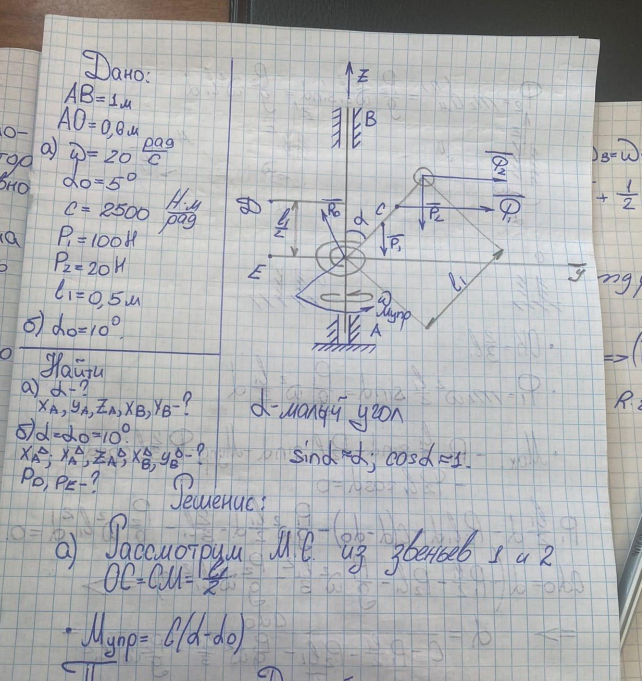 Дано:
AB=1м
AO=0,6м
а) ω=20 рад/с
α₀=5°
c=2500 Н·м/рад
P₁=100Н
P₂=20Н
l₁=0,5м
б) α₀=10°.
Найти
а) α-?
XA, YA, ZA, XB, YB-?
б) α=α₀=10°.
PD, PE-?
z
B
D
l₁/2
R₀
α
C
P₁
P₂
Φ₂
Φ₁
E
y
l₁
ω
Mупр
A
α-малый угол
sinα≈α; cosα≈1.
Решение:
а) Рассмотрим М.С. из звеньев 1 и 2
OC=CM=l₁/2
· Mупр= C(α-α₀)